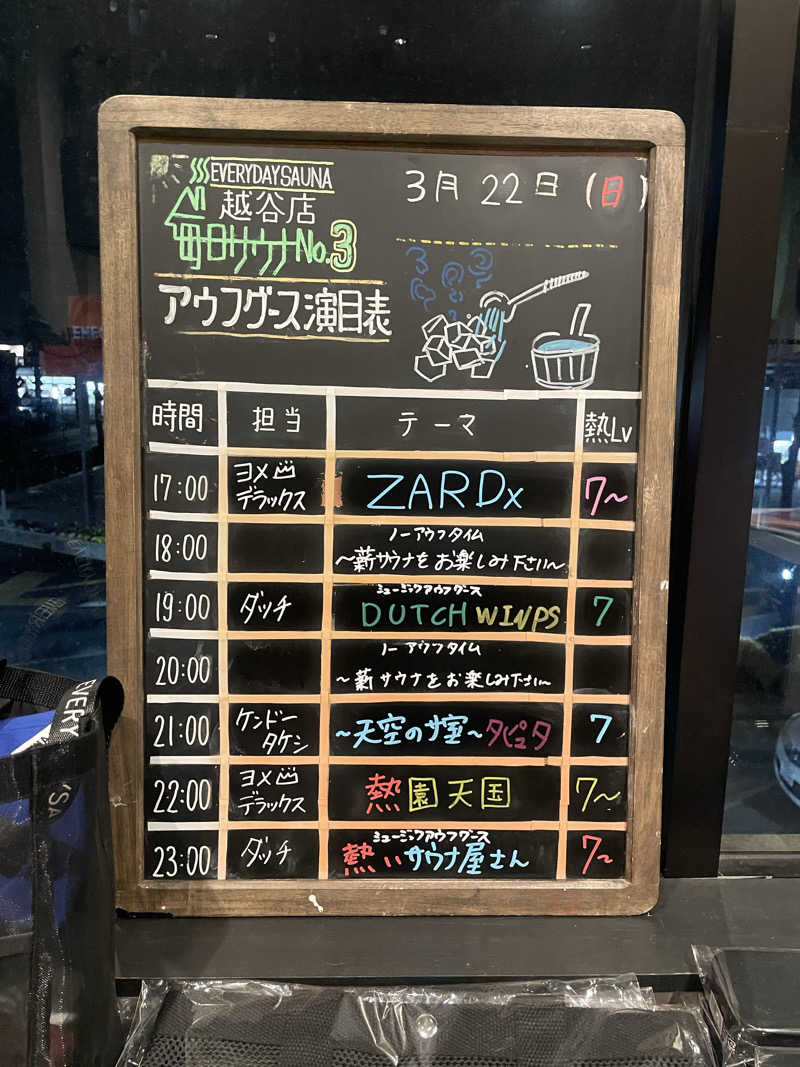 EVERYDAY SAUNA
越谷店
毎日サウナ No.3
アウフグース演目表
3月 22日 (日)
時間 担当 テーマ 熱Lv
17:00 ヨメ
デラックス
ZARDx 7〜
18:00 ノーアウフタイム
〜薪サウナをお楽しみ下さい〜
19:00 ダッチ ミュージックアウフグース
DUTCH WINPS 7
20:00 ノーアウフタイム
〜薪サウナをお楽しみ下さい〜
21:00 ケンドー
タケシ
〜天空のサ室〜タピュタ 7
22:00 ヨメ
デラックス
熱園天国 7〜
23:00 ダッチ ミュージックアウフグース
熱いサウナ屋さん 7〜
EVERY